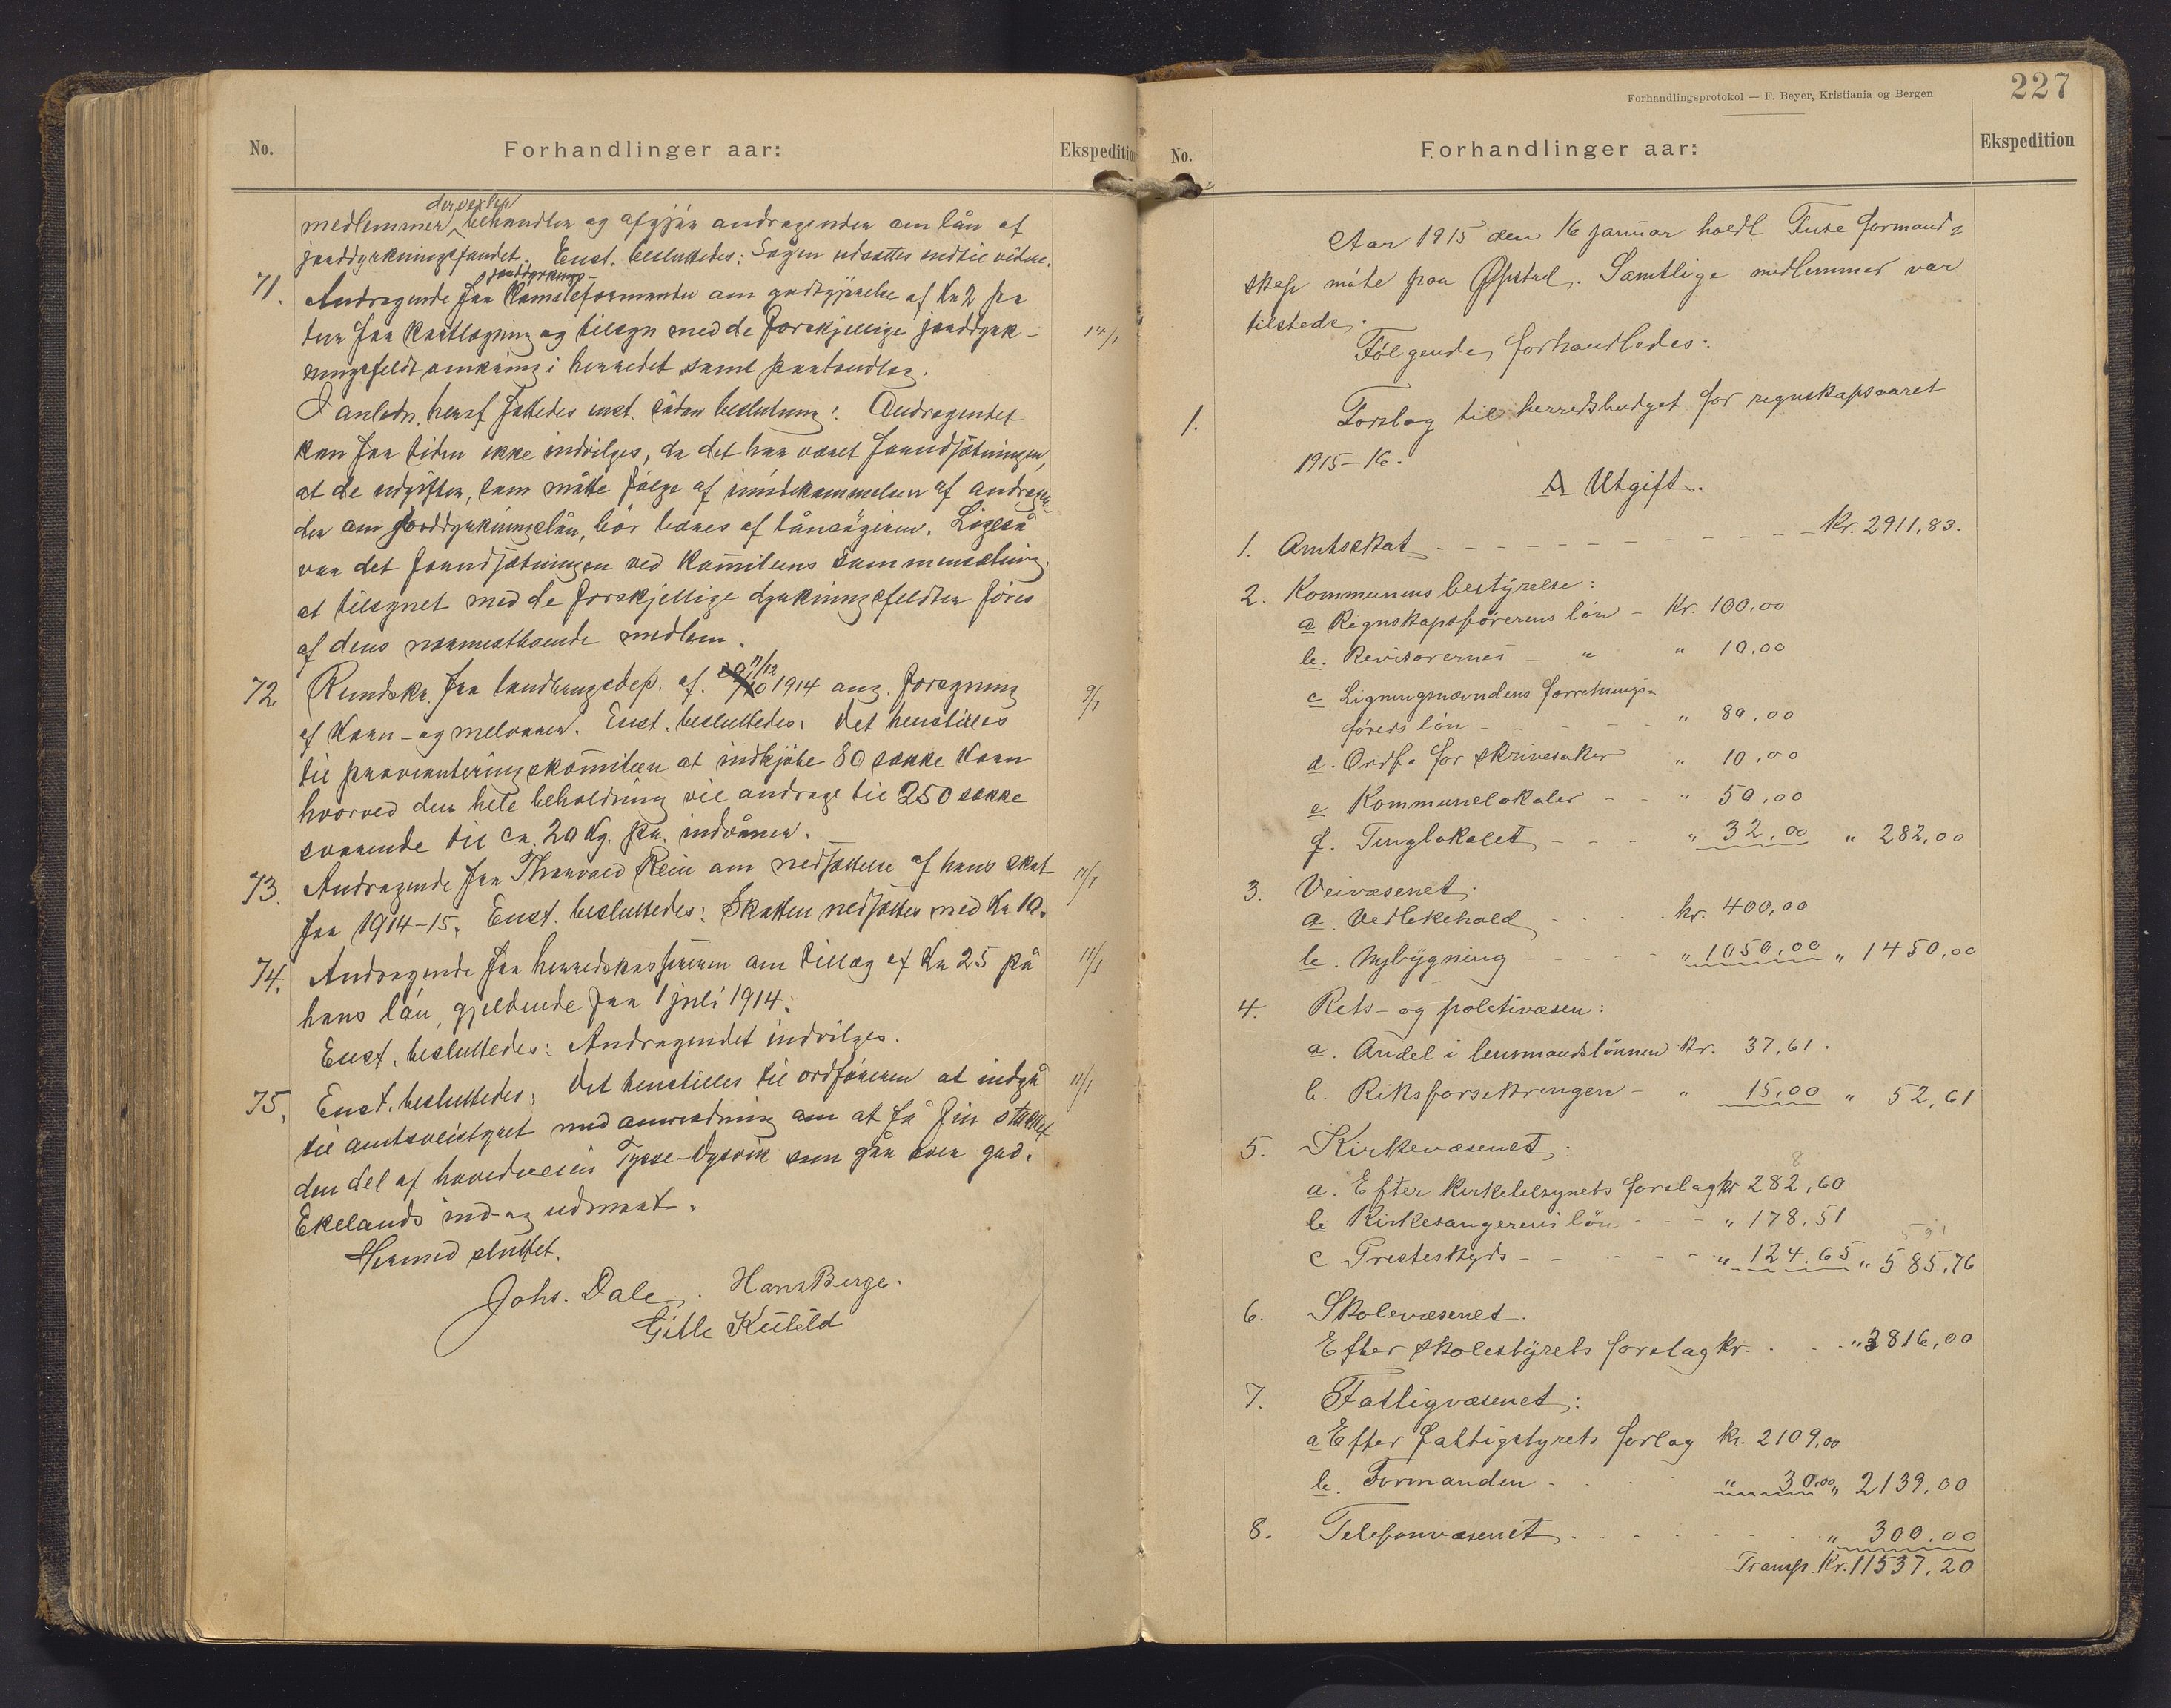 No.
Forhandlinger aar:
Ekspedition
der vexler
medlemmer, behandler og afgjør andragender om lån af
jorddyrkningsfondet. Enst. besluttedes: Sagen udsættes indtil videre.
71. Andragende fra jorddyrknings-
komiteformanden om godtgjørelse af Kr 2 pr
dag for kartlægning og tilsyn med de forskjellige jorddyrk- 14/1
ningsfeldt omkring i herredet samt
I anledn. heraf fattedes enst. sådan beslutning: Andragendet
kan for tiden ikke indvilges, da det har været forudsætningen,
at de udgifter, som måtte følge af imødekommelsen af andragen-
der om jorddyrkningslån, bör bæres af lånsögeren. Ligeså
var det forudsætningen ved komiteens sammensætning
at tilsynet med de forskjellige dyrkningsfeldter föres
af dens nærmestboende medlem.
72 Rundskr. fra landbrugsdep. af 11/12 1914 ang. forsyning 9/1
af korn- og melvarer. Enst. besluttedes: Det henstilles
til provianteringskomiteen at indkjöbe 80 sække korn
hvorved den hele beholdning vil andrage til 250 sække
svarende til ca. 20 kg. pr. indvåner.
73. Andragende fra Thorvald Rein om nedsættelse af hans skat 11/1
for 1914-15. Enst. besluttedes: Skatten nedsættes med Kr 10.
74. Andragende fra herredskassereren om tillæg af Kr 25 på 11/1
hans lön, gjeldende fra 1 juli 1914.
Enst. besluttedes: Andragendet indvilges.
75. Enst. besluttedes: Det henstilles til ordföreren at indgå 11/1
til amtsveistyret med anmodning om at få i stillet
den del af hovedveien Tysse-Dysvik som går over grd.
Ekelands ind- og udmark.
Hermed sluttet.
Johs. Dale. Hans Berge.
Gitle Kiilild
Forhandlingsprotokol — F. Beyer, Kristiania og Bergen
227
No.
Forhandlinger aar:
Ekspedition
Aar 1915 den 16 januar holdt Fuse formand=
skap möte paa Øpstad. Samtlige medlemmer var
tilstede.
Følgende forhandledes:
1. Forslag til herredsbudget for regnskapsaaret
1915-16.
A Utgift.
1. Amtsskat - - - - Kr. 2911,83.
2. Kommunens bestyrelse:
a Regnskapsførerens lön - Kr. 100,00
b. Revisorernes - " " 10.00
c Ligningsnævndens forretnings-
förers lön - - - " 80,00
d. Ordf. for skrivesaker " 10,00
e Kommunelokaler - - " 50,00
f. Tinglokalet - - - " 32,00 " 282,00
3. Veivæsenet.
a. Vedlikehold - - - kr. 400,00
b. Nybygning - - - - " 1050,00 " 1450,00
4. Rets- og politivæsen:
a. Andel i lensmandslønnen Kr. 37,61.
b. Riksforsikringen - " 15,00 " 52,61
5. Kirkevæsenet:
8
a. Efter kirketilsynets forslag kr 282,60
b Kirkesangerens lön - - - " 178,51
591
c Presteskyds - - - - - " 124.65 " 585,76
6. Skolevæsenet.
Efter skolestyrets forslag kr. . . . " 3816,00
7. Fattigvæsenet:
a Efter fattigstyrets forlag kr. 2109,00
b. Formanden - . . " 30,00 " 2139,00
8. Telefonvæsenet - - - - " 300,00
Transp. Kr. 11537,20